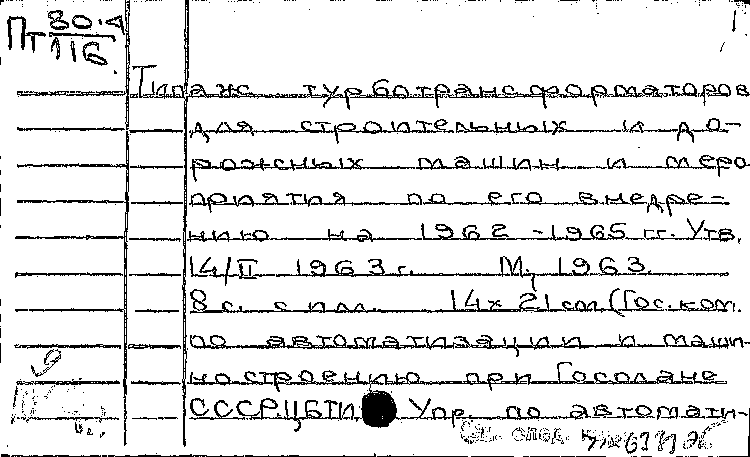 Пт 80-4
116.
1.
Типаж турботрансформаторов
для строительных и до-
рожных машин и меро
приятия по его внедре-
нию на 1962-1965 гг. Утв.
14/II 1963 г. М., 1963.
8 с. с илл. 14х21 см. (Гос. ком.
по автоматизации и маши-
ностроению при Госплане
СССР. ЦБТИ. Упр. по автомати-
См. след.